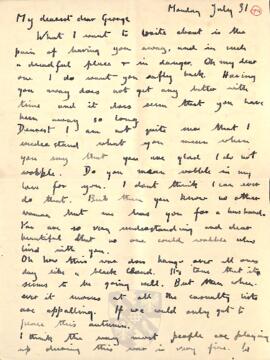 Monday July 31
My dearest dear George
What I want to write about is the
pain of having you away, and in such
a dreadful place & in danger. Oh my dear
one I do want you safely back. Having
you away does not get any better with
time and it does seem that you have
been away so long.
Dearest I am not quite sure that I
understand what you mean when
you say that you are glad I do not
wobble. Do you mean wobble in my
love for you. I dont think I can ever
do that. But then you know no other
woman but me has you for a husband.
You are so very understanding and dear
beautiful that no one could wobble who
lived with you.
Oh how this war does hang over all ones
day like a black cloud. It's true that it
seems to be going well. But then when-
ever it moves at all the casualty lists
are appalling. If we could only get to
peace this autumn.
I think the way most people are playing
up during this war is very fine.